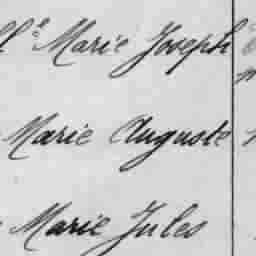 Marie Joseph
Marie Auguste
Marie Jules